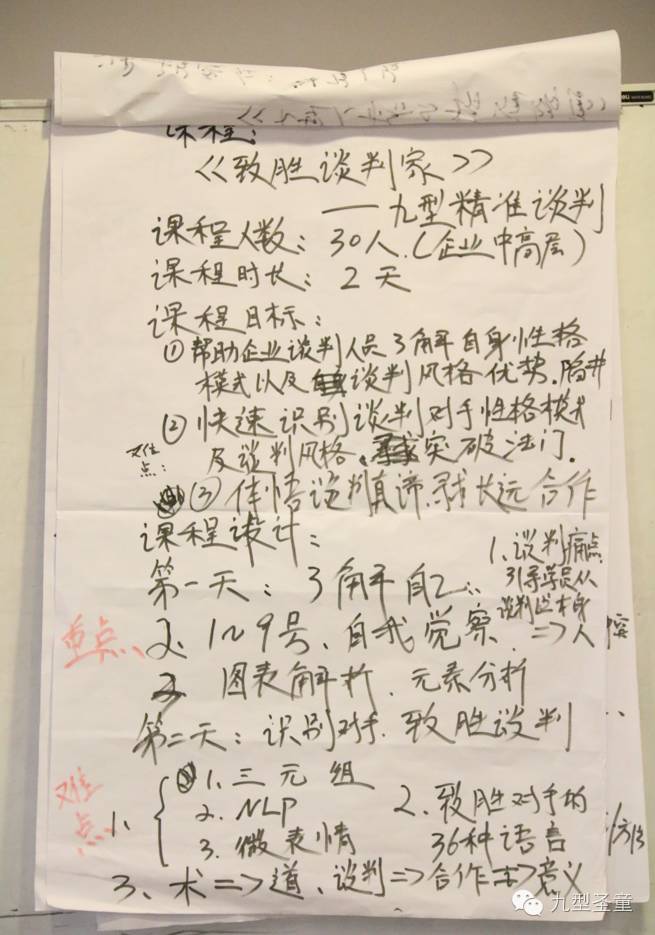 课程:
《致胜谈判家》
——九型精准谈判
课程人数: 30人.(企业中高层)
课程时长: 2天
课程目标:
①帮助企业谈判人员了解自身性格
模式以及谈判风格优势.陷井
②快速识别谈判对手性格模式
及谈判风格、突破法门.
难点:
③体悟谈判真谛.寻找长远合作
课程设计:
第一天: 了解自己..
1、谈判痛点
引导学员从
谈判这本身
=>人
重点、
2、1~9号、自我觉察.
3 图表解析、元素分析
第二天: 识别对手.致胜谈判
难点、
1、
1.三元组
2.NLP
3.微表情
2.致胜对手的
36种语言
3、术=>道、谈判=>合作=>意义
九型圣童